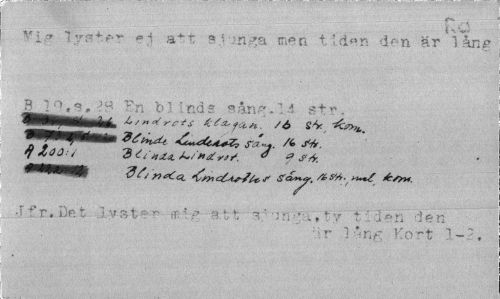 Rö
Mig lyster ej att sjunga men tiden den är lång
B 19.s.28 En blinds sång.14 str.
Lindrots klagan. 15 str. kom.
Blinde Linderots sång. 16 str.
A 200:1 Blinda Lindrot. 9 str.
Blinda Lindrothus sång. 16 str., mel, kom.
Jfr.Det lyster mig att sjunga,ty tiden den
är lång Kort 1-2.